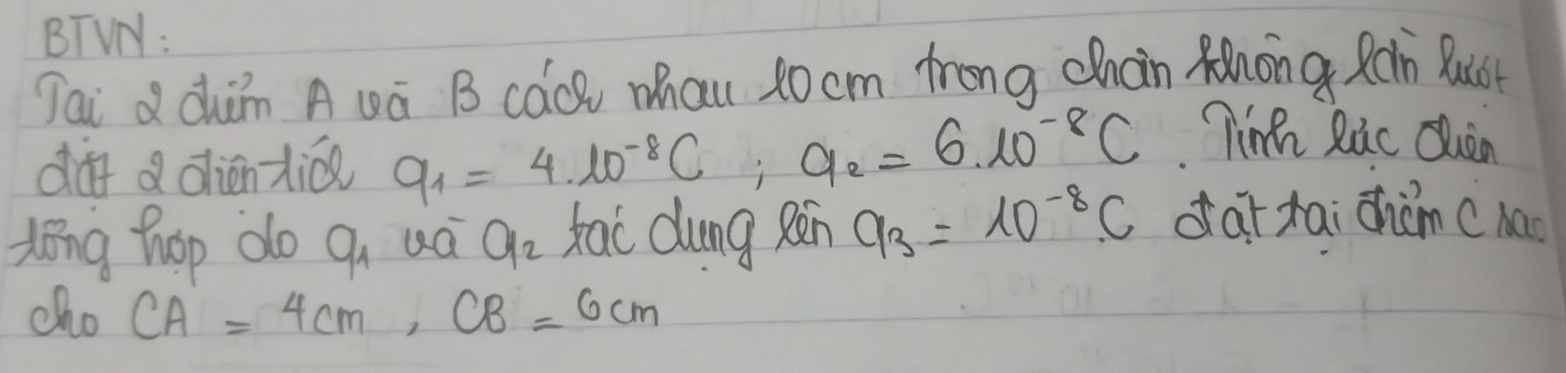 BTVN:
Tại 2 điểm A và B cách nhau 10cm trong chân không lần lượt
đặt 2 điện tích q₁ = 4.10⁻⁸C ; q₂ = 6.10⁻⁸C. Tính lực điện
tổng hợp do q₁ và q₂ tác dụng lên q₃ = 10⁻⁸C đặt tại điểm C sao
cho CA = 4cm, CB = 6cm